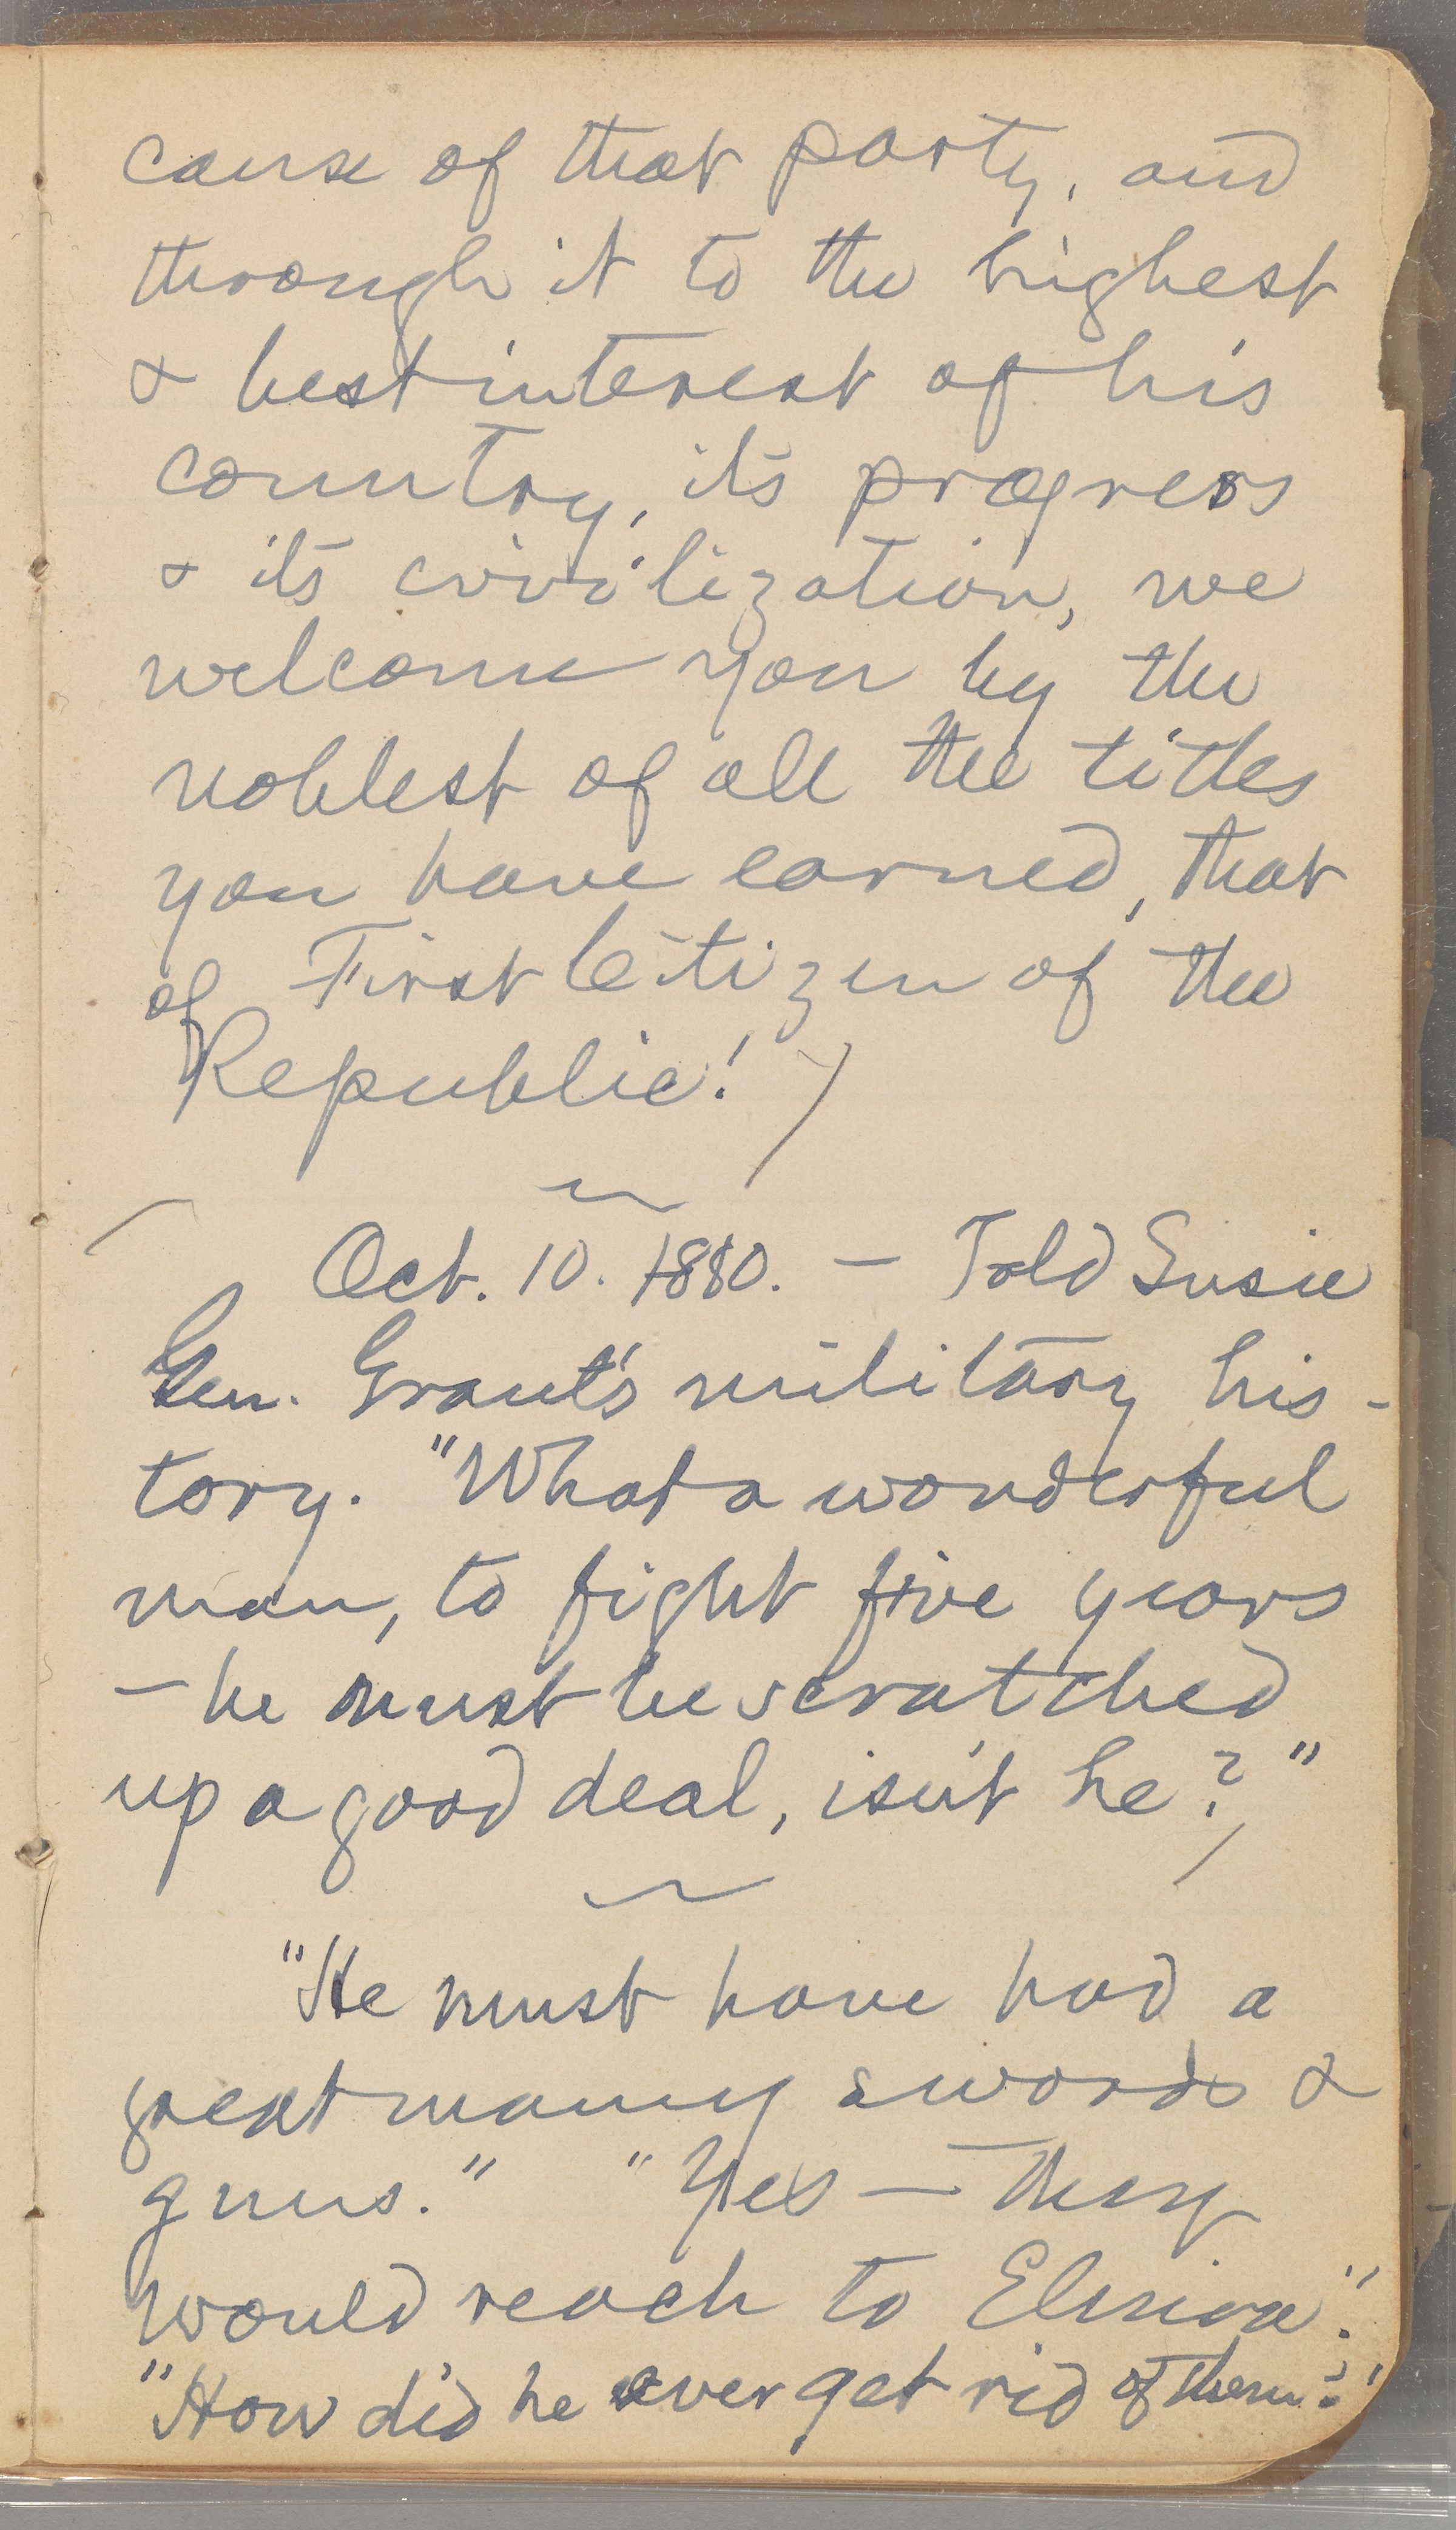 cause of that party, and
through it to the highest
& best interest of his
country, its progress
& its civilization, we
welcome you by the
noblest of all the titles
you have earned, that
of First Citizen of the
Republic!)
Oct. 10. 1880. — Told Susie
Gen. Grant's military his-
tory. "What a wonderful
man, to fight five years
— he must be scratched
up a good deal, isn't he?"
"He must have had a
great many swords &
guns." "Yes — they
would reach to Elmira."
"How did he ever get rid of them?"